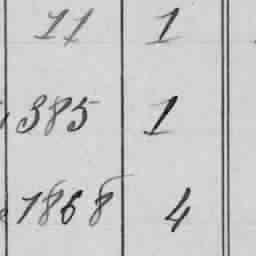 11 1
385 1
1868 4